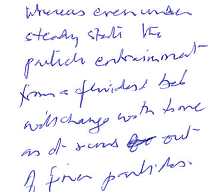 whereas even under
steady state the
particle entrainment
from a fluidised bed
will change with time
as it runs out
of finer particles.